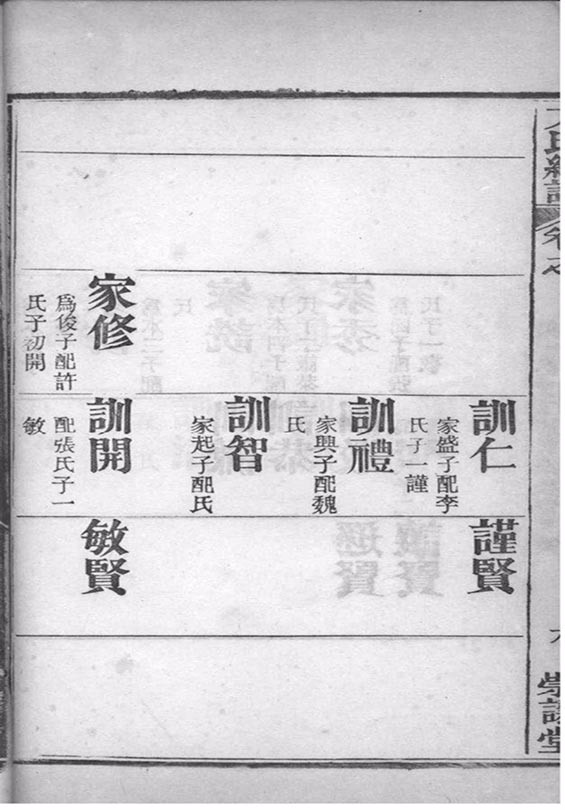 家修
爲俊子配許
氏子初開
訓仁
家盛子配李
氏子一謹
訓禮
家興子配魏
氏
訓智
家起子配氏
訓開
配張氏子一
敏
謹賢
敏賢